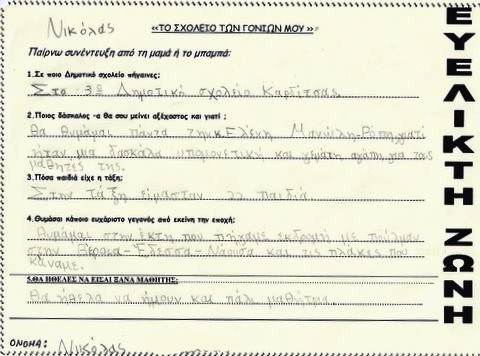 Νικόλας
«ΤΟ ΣΧΟΛΕΙΟ ΤΩΝ ΓΟΝΙΩΝ ΜΟΥ»
Παίρνω συνέντευξη από τη μαμά ή το μπαμπά:
1.Σε ποιο Δημοτικό σχολείο πήγαινες;
Στο 3ο Δημοτικό σχολείο Καρδίτσας
2.Ποιος δάσκαλος -α θα σου μείνει αξέχαστος και γιατί ;
Θα θυμάμαι πάντα την κ.Ελένη γιατί
ήταν μια δασκάλα υπομονετική και γεμάτη αγάπη για τους
μαθητές της.
3.Πόσα παιδιά είχε η τάξη;
Στην τάξη είμασταν 22 παιδιά.
4.Θυμάσαι κάποιο ευχάριστο γεγονός από εκείνη την εποχή;
Θυμάμαι στην έκτη που πήγαμε εκδρομή με πούλμαν
στην Βέροια-Έδεσσα-Νάουσα και τις πλάκες που
κάναμε.
5.ΘΑ ΗΘΕΛΕΣ ΝΑ ΕΙΣΑΙ ΞΑΝΑ ΜΑΘΗΤΗΣ;
Θα ήθελα να ήμουν και πάλι μαθήτρια.
ΟΝΟΜΑ: Νικόλας
ΕΥΕΛΙΚΤΗ ΖΩΝΗ